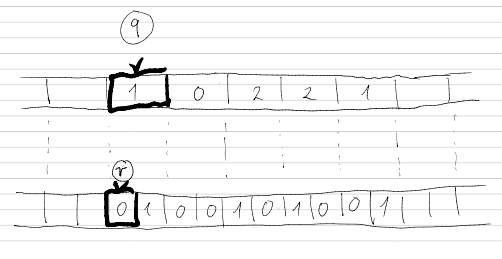 q
1 0 2 2 1
r
0 1 0 0 1 0 1 0 0 1